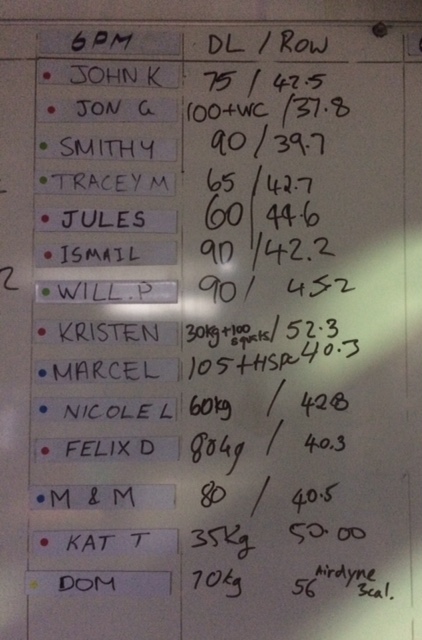 6PM DL / ROW
JOHN K 75 / 42.5
JON G 100+WC / 37.8
SMITHY 90 / 39.7
TRACEY M 65 / 42.7
JULES 60 / 44.6
ISMAIL 90 / 42.2
WILL.P 90 / 45.2
KRISTEN 30kg+100 squats / 52.3
MARCEL 105+HSPU 40.3
NICOLE L 60kg / 42.8
FELIX D 80kg / 40.3
M & M 80 / 40.5
KAT T 35Kg 50.00
DOM 70kg 56 Airdyne 3cal.